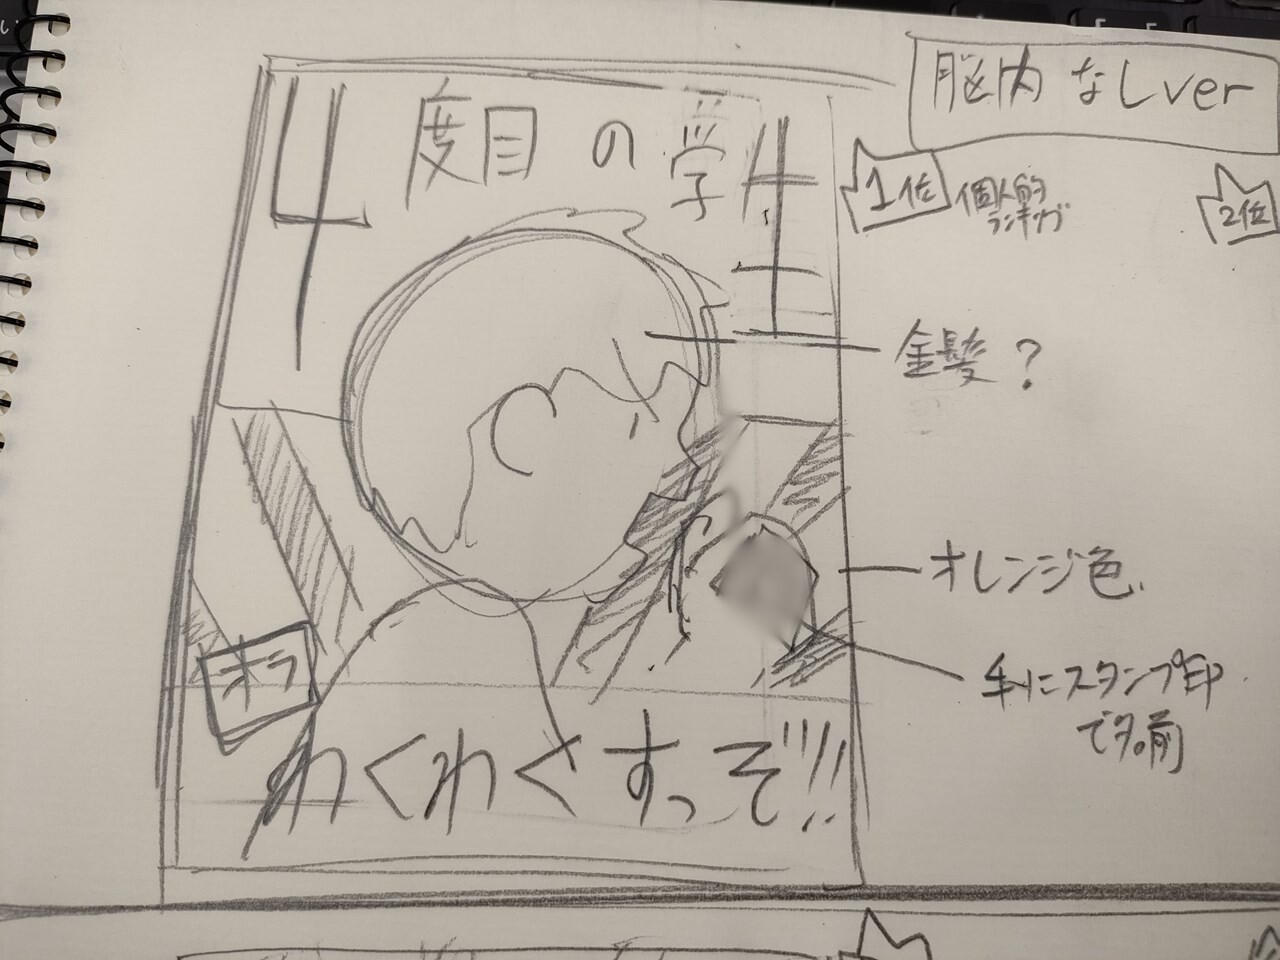 脳内なしver
4度目の学生
1位
個人的
ランキング
2位
金髪?
オレンジ色
手にスタンプ印
で名前
オラ
わくわくすっぞ!!!